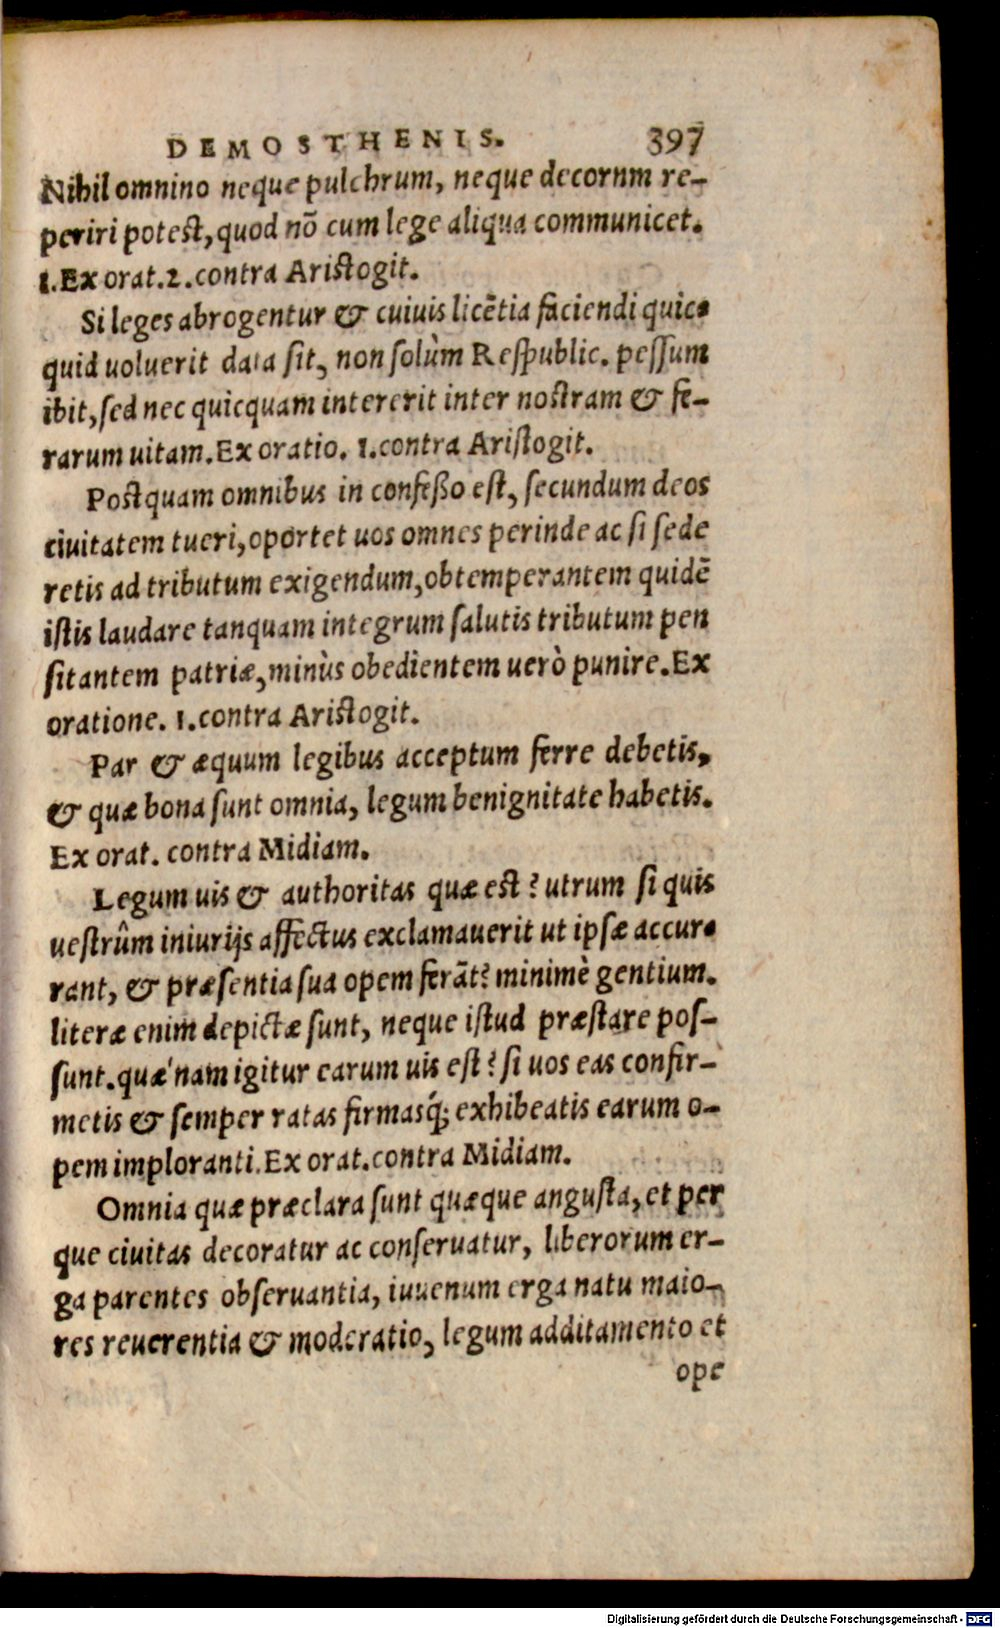 DEMOSTHENIS. 397
Nihil omnino neque pulchrum, neque decornm re-
periri potest, quod nõ cum lege aliqua communicet.
1. Ex orat. 2. contra Aristogit.
Si leges abrogentur & cuiuis licẽtia faciendi quic-
quid uoluerit data sit, non solùm Respublic. pessum
ibit, sed nec quicquam intererit inter nostram & fe-
rarum uitam. Ex oratio. 1. contra Aristogit.
Postquam omnibus in confeßo est, secundum deos
ciuitatem tueri, oportet uos omnes perinde ac si sede
retis ad tributum exigendum, obtemperantem quidẽ
istis laudare tanquam integrum salutis tributum pen
sitantem patriæ, minùs obedientem uerò punire. Ex
oratione. 1. contra Aristogit.
Par & æquum legibus acceptum ferre debetis,
& quæ bona sunt omnia, legum benignitate habetis.
Ex orat. contra Midiam.
Legum uis & authoritas quæ est? utrum si quis
uestrûm iniurijs affectus exclamauerit ut ipsæ accur-
rant, & præsentia sua opem ferãt? minimè gentium.
literæ enim depictæ sunt, neque istud præstare pos-
sunt. quæ´nam igitur earum uis est? si uos eas confir-
metis & semper ratas firmasq́; exhibeatis earum o-
pem imploranti. Ex orat. contra Midiam.
Omnia quæ præclara sunt quæque angusta, et per
que ciuitas decoratur ac conseruatur, liberorum er-
ga parentes obseruantia, iuuenum erga natu maio-
res reuerentia & moderatio, legum additamento et
ope
Digitalisierung gefördert durch die Deutsche Forschungsgemeinschaft - DFG